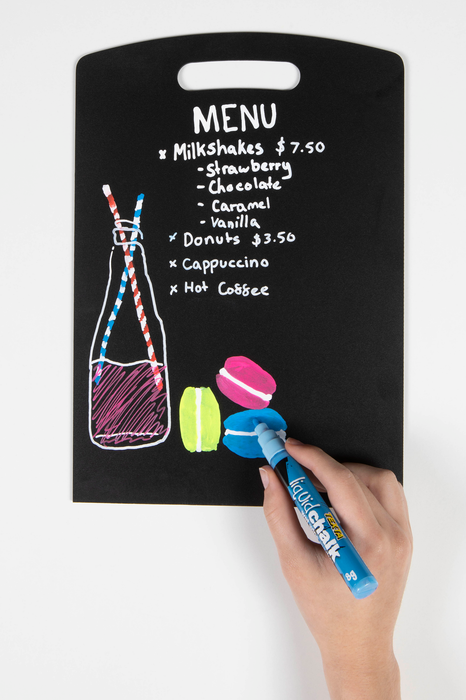 MENU
x Milkshakes $7.50
- Strawberry
- Chocolate
- Caramel
- Vanilla
x Donuts $3.50
x Cappuccino
x Hot Coffee
TEXTA
liquid chalk
8g